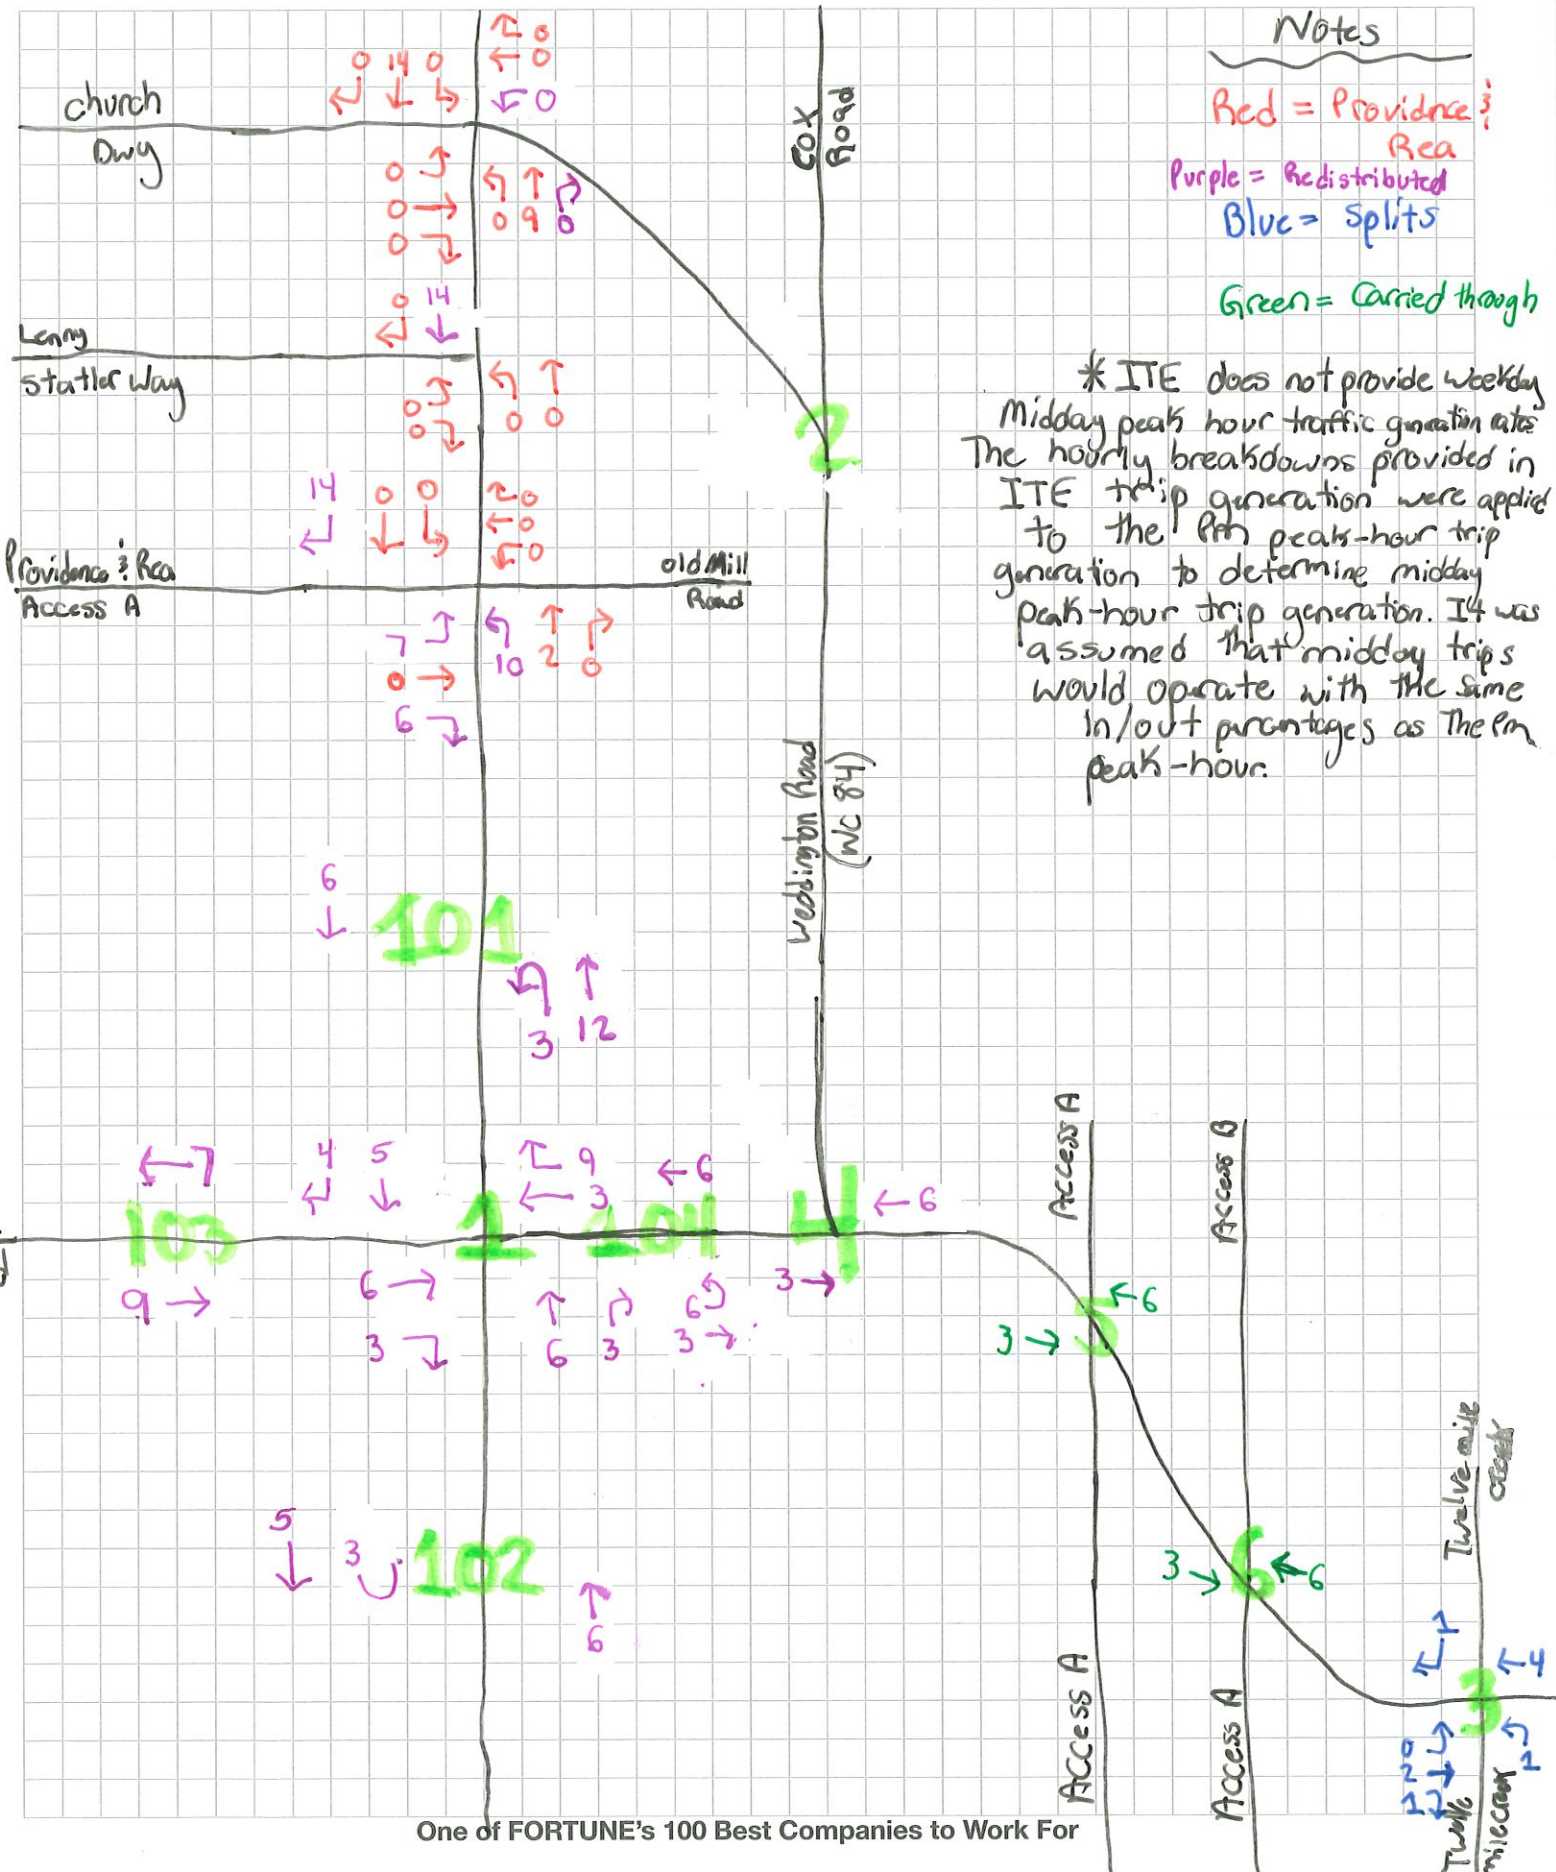 Notes
Red = Providnce &
Rea
Purple = Redistributed
Blue = Splits
Green = Carried through
* ITE does not provide weekday
Midday peak hour traffic generation rates
The hourly breakdowns provided in
ITE trip generation were applied
to the Pm peak-hour trip
generation to determine midday
peak-hour trip generation. It was
assumed that midday trips
would operate with the same
in/out percentages as The Pm
peak-hour.
church
Dwy
0 14 0
0
0
0
0
0
0
0 9 0
Cox
Road
0 14
Lenny
Statler Way
0
0
0 0
2
14 0 0
0
0
0
Providence & Rea
Access A
old Mill
Road
7
0
6
10 2 0
Weddington Road
(NC 84)
6
101
3 12
7
4 5
9
3
6
103
1
104
4
6
9
6
3
6 3
6
3
3
Access A
Access B
6
3
5
5
3
102
6
3
6
6
Access A
Access A
Twelve mile
creek
1
4
3
0
2
1
1
Twelve
milecreek
One of FORTUNE's 100 Best Companies to Work For